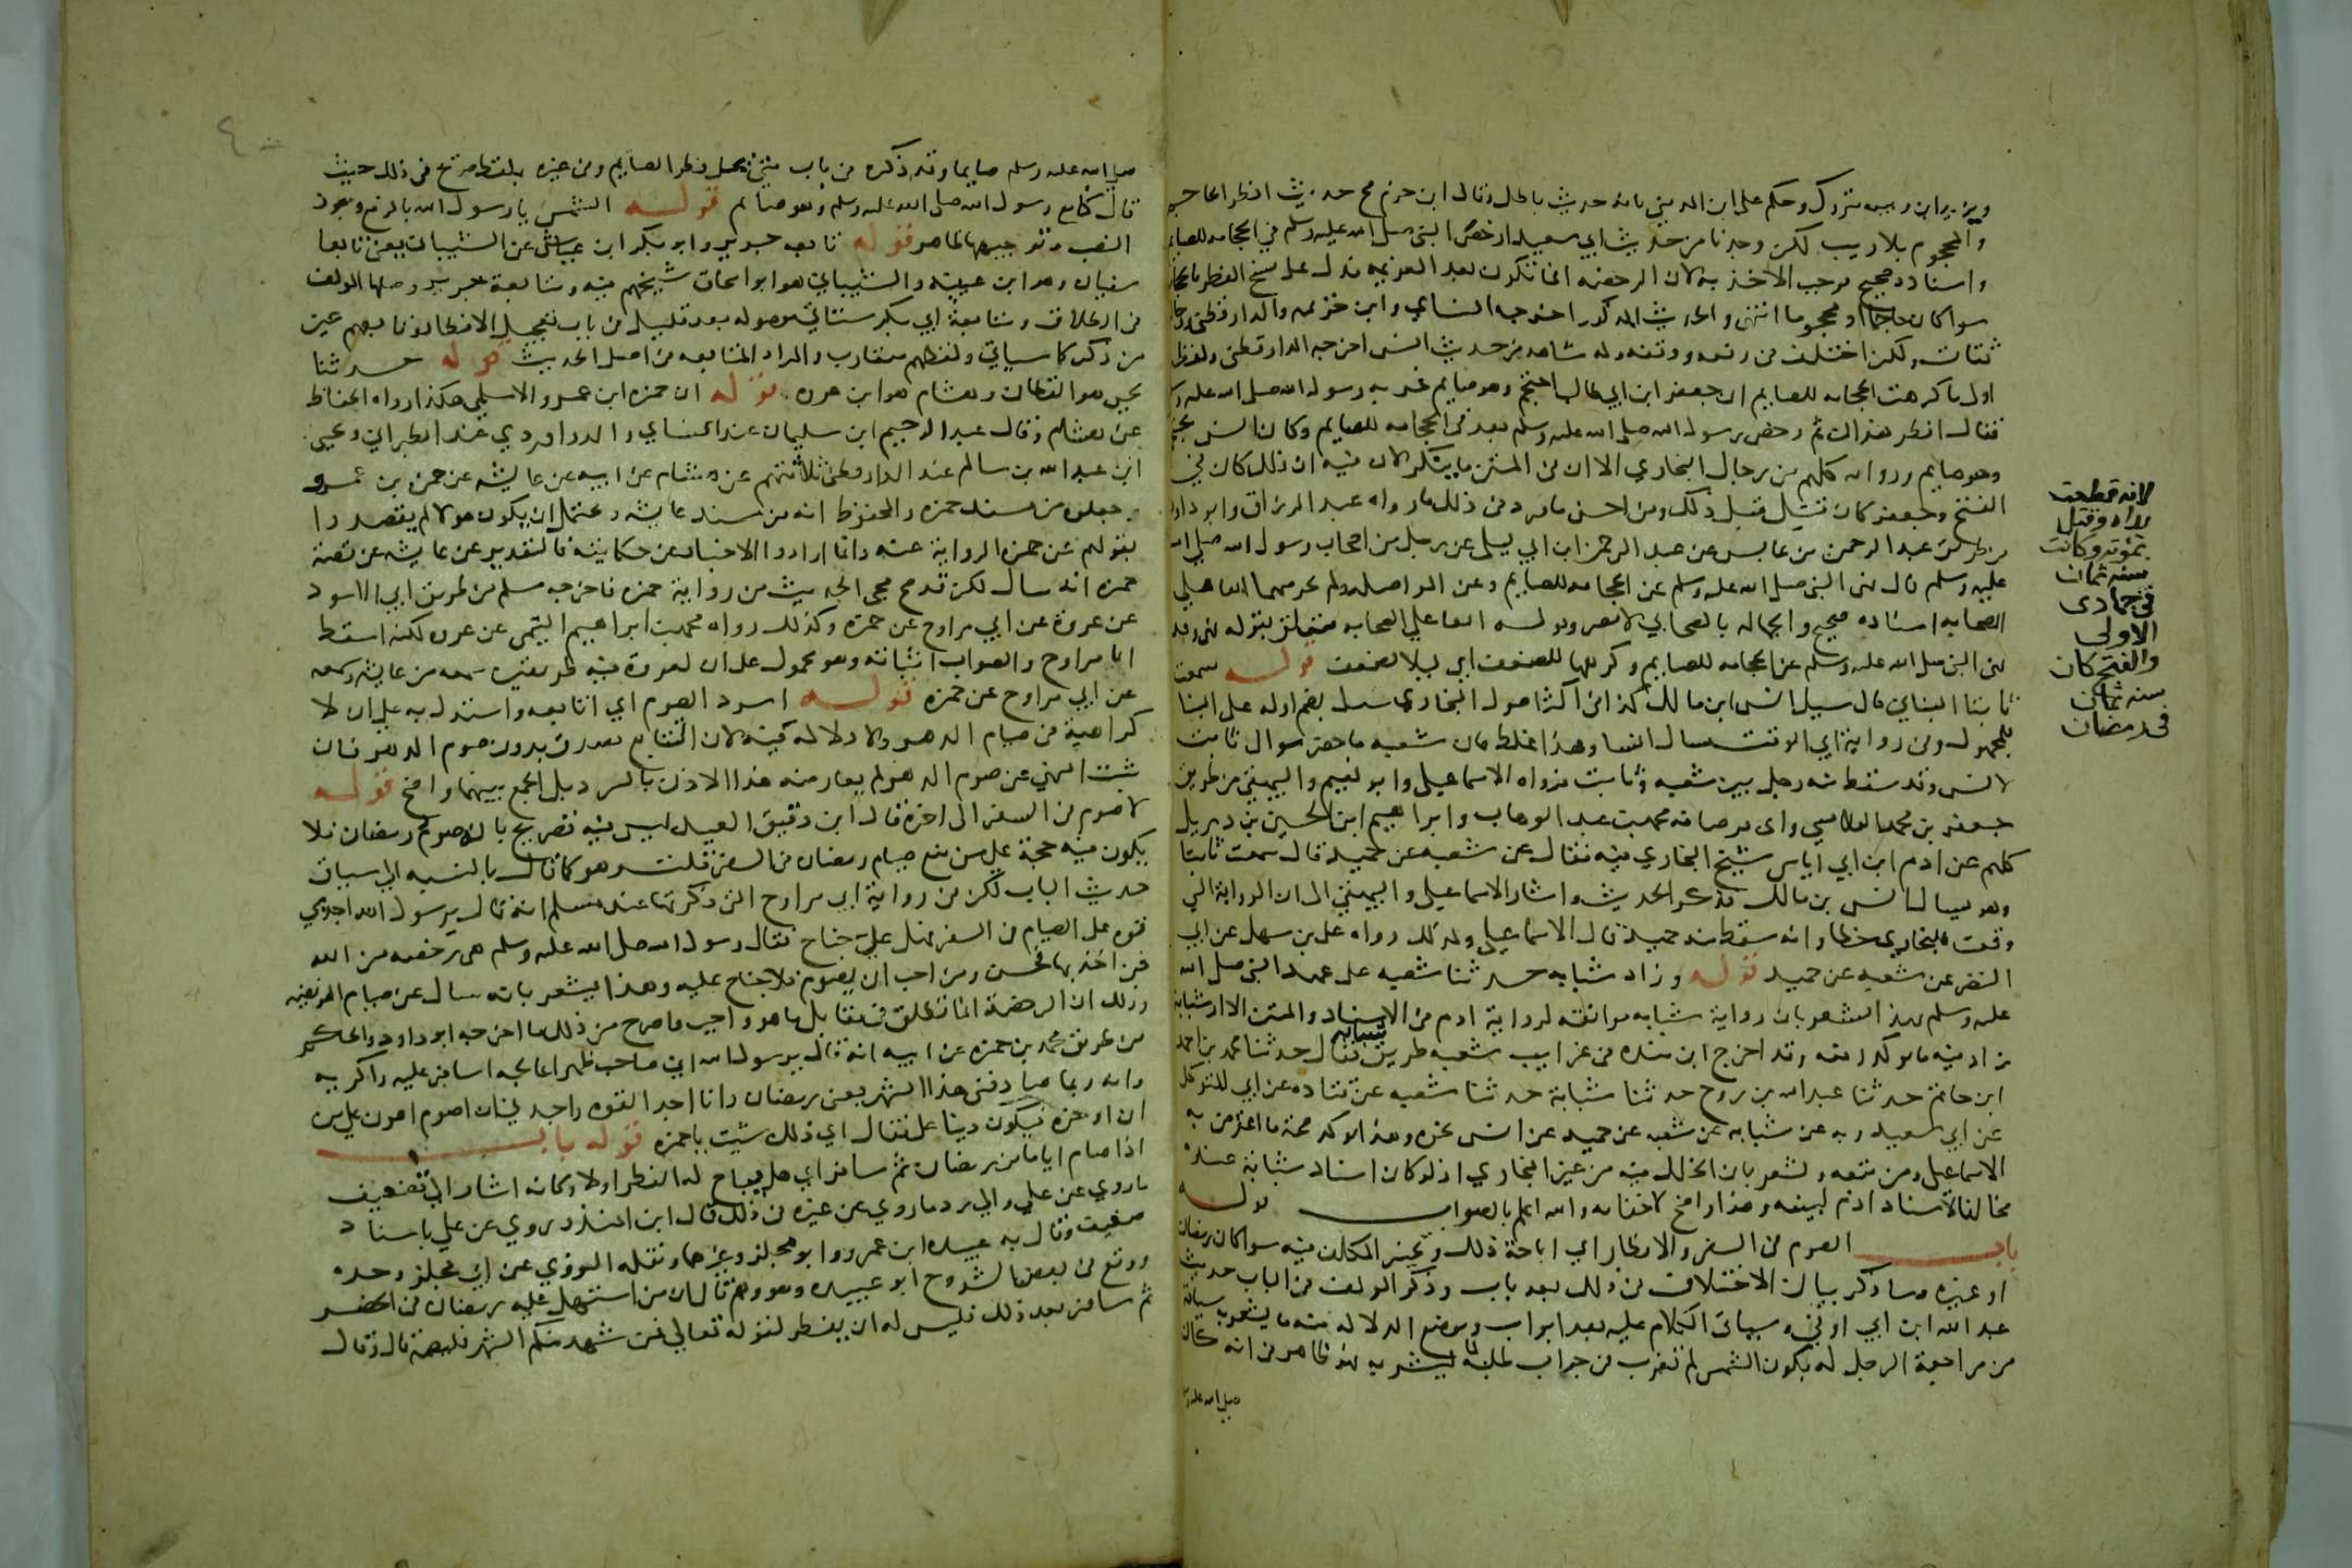 ويزيد ابن ربيعه متروك وحكم على ابن المديني بانه حديث باطل وقال ابن حزم صح حديث افطر الحاجم
والمحجوم بلا ريب لكن وجدنا من حديث ابي سعيد ارخص النبي صلى الله عليه وسلم في الحجامه للصايم
واسناده صحيح فوجب الاخذ به لان الرخصه انما تكون بعد العزيمه فدل على نسخ الفطر بالحجامه
سوا كان حاجما او محجوما انتهى والحديث المذكور اخرجه النساي وابن خزيمه والدارقطني ورجاله
ثقات ولكن اختلف في رفعه ووقفه وله شاهد من حديث انس اخرجه الدارقطني ولفظه
اول ما كرهت الحجامه للصايم ان جعفر ابن ابي طالب احتجم وهو صايم فمر به رسول الله صلى الله عليه وسلم
فقال افطر هذان ثم رخص رسول الله صلى الله عليه وسلم بعد في الحجامه للصايم وكان انس يحتجم
وهو صايم ورواته كلهم من رجال البخاري الا ان في المتن ما ينكر لان فيه ان ذلك كان في
الفتح وجعفر كان قتل قبل ذلك ومن احسن ما ورد في ذلك ما رواه عبد الرزاق وابو داود
من طريق عبد الرحمن بن عابس عن عبد الرحمن ابن ابي ليلى عن رجل من اصحاب رسول الله صلى الله
عليه وسلم قال نهى النبي صلى الله عليه وسلم عن الحجامه للصايم وعن المواصله ولم يحرمهما ابقا على
اصحابه اسناده صحيح والجهاله بالصحابي لا تضر وقوله ابقا على اصحابه متعلق بقوله نهى وقد
نهى النبي صلى الله عليه وسلم عن الحجامه للصايم وكرهها للضعف اي ليلا يضعف قوله سمعت
ثابتا البناني قال سيل انس ابن مالك كذا في اكثر اصول البخاري سيل بضم اوله على البنا
للمجهول وفي رواية ابي الوقت سال انسا وهذا غلط فان شعبه ما حضر سوال ثابت
لانس وقد سقط منه رجل بين شعبه وثابت فرواه الاسماعيلي وابو نعيم والبيهقي من طريق
جعفر بن محمد القلانسي وابي قرصافه محمد بن عبد الوهاب وابراهيم ابن الحسين بن ديزيل
كلهم عن ادم ابن ابي اياس شيخ البخاري فيه فقال عن شعبه عن حميد قال سمعت ثابتا
وهو يسال انس بن مالك فذكر الحديث واشار الاسماعيلي والبيهقي الى ان الرواية التي
وقعت للبخاري خطا وانه سقط منه حميد قال الاسماعيلي وكذلك رواه علي بن سهل عن ابي
النضر عن شعبه عن حميد قوله وزاد شبابه حدثنا شعبه على عهد النبي صلى الله
عليه وسلم هذا يشعر بان رواية شبابه موافقه لرواية ادم في الاسناد والمتن الا ان شبابه
زاد فيه ما يوكد رفعه وقد اخرج ابن منده في غرايب شعبه طريق شبابه فقال حدثنا محمد بن احمد
ابن حاتم حدثنا عبد الله بن روح حدثنا شبابة حدثنا شعبه عن قتاده عن ابي المتوكل
عن ابي سعيد وبه عن شبابه عن شعبه عن حميد عن انس نحوه وهذا يوكد صحة ما اعترض به
الاسماعيلي ومن تبعه ويشعر بان الخلل فيه من غير البخاري اذ لو كان اسناد شبابة عنده
مخالفا لاسناد ادم لبينه وهذا واضح لا خفا به والله اعلم بالصواب قوله
باب الصوم في السفر والافطار اي اباحة ذلك وتخيير المكلف فيه سوا كان رمضان
او غيره وساذكر بيان الاختلاف في ذلك بعد باب وذكر المولف في الباب حديث
عبد الله ابن ابي اوفى وسياتي الكلام عليه بعد ابواب وموضع الدلالة منه ما يشعر به سياقه
من مراجعة الرجل له بكون الشمس لم تغرب في جواب طلبه لما يشربه فهو ظاهر في انه كان
صلى الله عليه وسلم
لانه قطعت
يداه وقتل
بمؤته وكانت
سنه ثمان
في جمادى
الاولى
والفتح كان
سنه ثمان
في رمضان
صلى الله عليه وسلم صايما وقد ذكره في باب متى يحل فطر الصايم وفي غيره بلفظ صريح في ذلك حيث
قال كنا مع رسول الله صلى الله عليه وسلم وهو صايم قوله الشمس يا رسول الله بالرفع ويجوز
النصب وتوجيهها ظاهر قوله تابعه جرير وابو بكر ابن عياش عن الشيباني يعني تابعا
سفيان وهو ابن عيينه والشيباني هو ابو اسحاق شيخهم فيه ومتابعة جرير وصلها المولف
في الطلاق ومتابعة ابي بكر ستاتي موصوله بعد قليل في باب تعجيل الافطار وتابعهم غير
من ذكر كما سياتي ولفظهم متقارب والمراد المتابعه في اصل الحديث قوله حدثنا
يحيى هو القطان وهشام هو ابن عروه قوله ان حمزه ابن عمرو الاسلمي هكذا رواه الحفاظ
عن هشام وقال عبد الرحيم ابن سليمان عند النساي والدراوردي عند الطبراني ويحيى
ابن عبد الله بن سالم عند الدارقطني ثلاثتهم عن هشام عن ابيه عن عايشه عن حمزه بن عمرو
جعلوه من مسند حمزه والمحفوظ انه من مسند عايشه ويحتمل ان يكون هولا لم يقصدوا
بقولهم عن حمزه الرواية عنه وانما ارادوا الاخبار عن حكايته فالتقدير عن عايشه عن قصة
حمزه انه سال لكن قد صح مجي الحديث من رواية حمزه فاخرجه مسلم من طريق ابي الاسود
عن عروة عن ابي مراوح عن حمزه وكذلك رواه محمد بن ابراهيم التيمي عن عروه لكنه اسقط
ابا مراوح والصواب اثباته وهو محمول على ان لعروة فيه طريقين سمعه من عايشه وسمعه
عن ابي مراوح عن حمزه قوله اسرد الصوم اي اتابعه واستدل به على ان لا
كراهية في صيام الدهر ولا دلالة فيه لان التتابع يصدق بدون صوم الدهر فان
ثبت النهي عن صوم الدهر لم يعارضه هذا الاذن بالسرد بل الجمع بينهما واضح قوله
لاصوم في السفر الى اخره قال ابن دقيق العيد ليس فيه تصريح بانه صوم رمضان فلا
يكون فيه حجة على من منع صيام رمضان في السفر قلت وهو كما قال بالنسبه الى سياق
حديث الباب لكن في رواية ابي مراوح التي ذكرتها عند مسلم انه قال يا رسول الله اجد بي
قوه على الصيام في السفر فهل علي جناح فقال رسول الله صلى الله عليه وسلم هي رخصه من الله
فمن اخذ بها فحسن ومن احب ان يصوم فلا جناح عليه وهذا يشعر بانه سال عن صيام الفريضه
وذلك ان الرخصة انما تطلق في مقابل ما هو واجب واصرح من ذلك ما اخرجه ابو داود والحاكم
من طريق محمد بن حمزه عن ابيه انه قال يا رسول الله اني صاحب ظهر اعالجه اسافر عليه واكريه
وانه ربما صادفني هذا الشهر يعني رمضان وانا اجد القوه واجدني ان اصوم اهون علي من
ان اوخره فيكون دينا علي فقال اي ذلك شيت يا حمزه قوله باب
اذا صام اياما من رمضان ثم سافر اي هل يباح له الفطر اولا وكانه اشار الى تضعيف
ما روي عن علي والى رد ما روي عن غيره في ذلك قال ابن المنذر روي عن علي باسناد
ضعيف وقال به عبيده ابن عمرو وابو مجلز وغيرهما ونقله النووي عن ابي مجلز وحده
ووقع في بعض الشروح ابو عبيده وهو وهم قالوا ان من استهل عليه رمضان في الحضر
ثم سافر بعد ذلك فليس له ان يفطر لقوله تعالى فمن شهد منكم الشهر فليصمه قال وقال